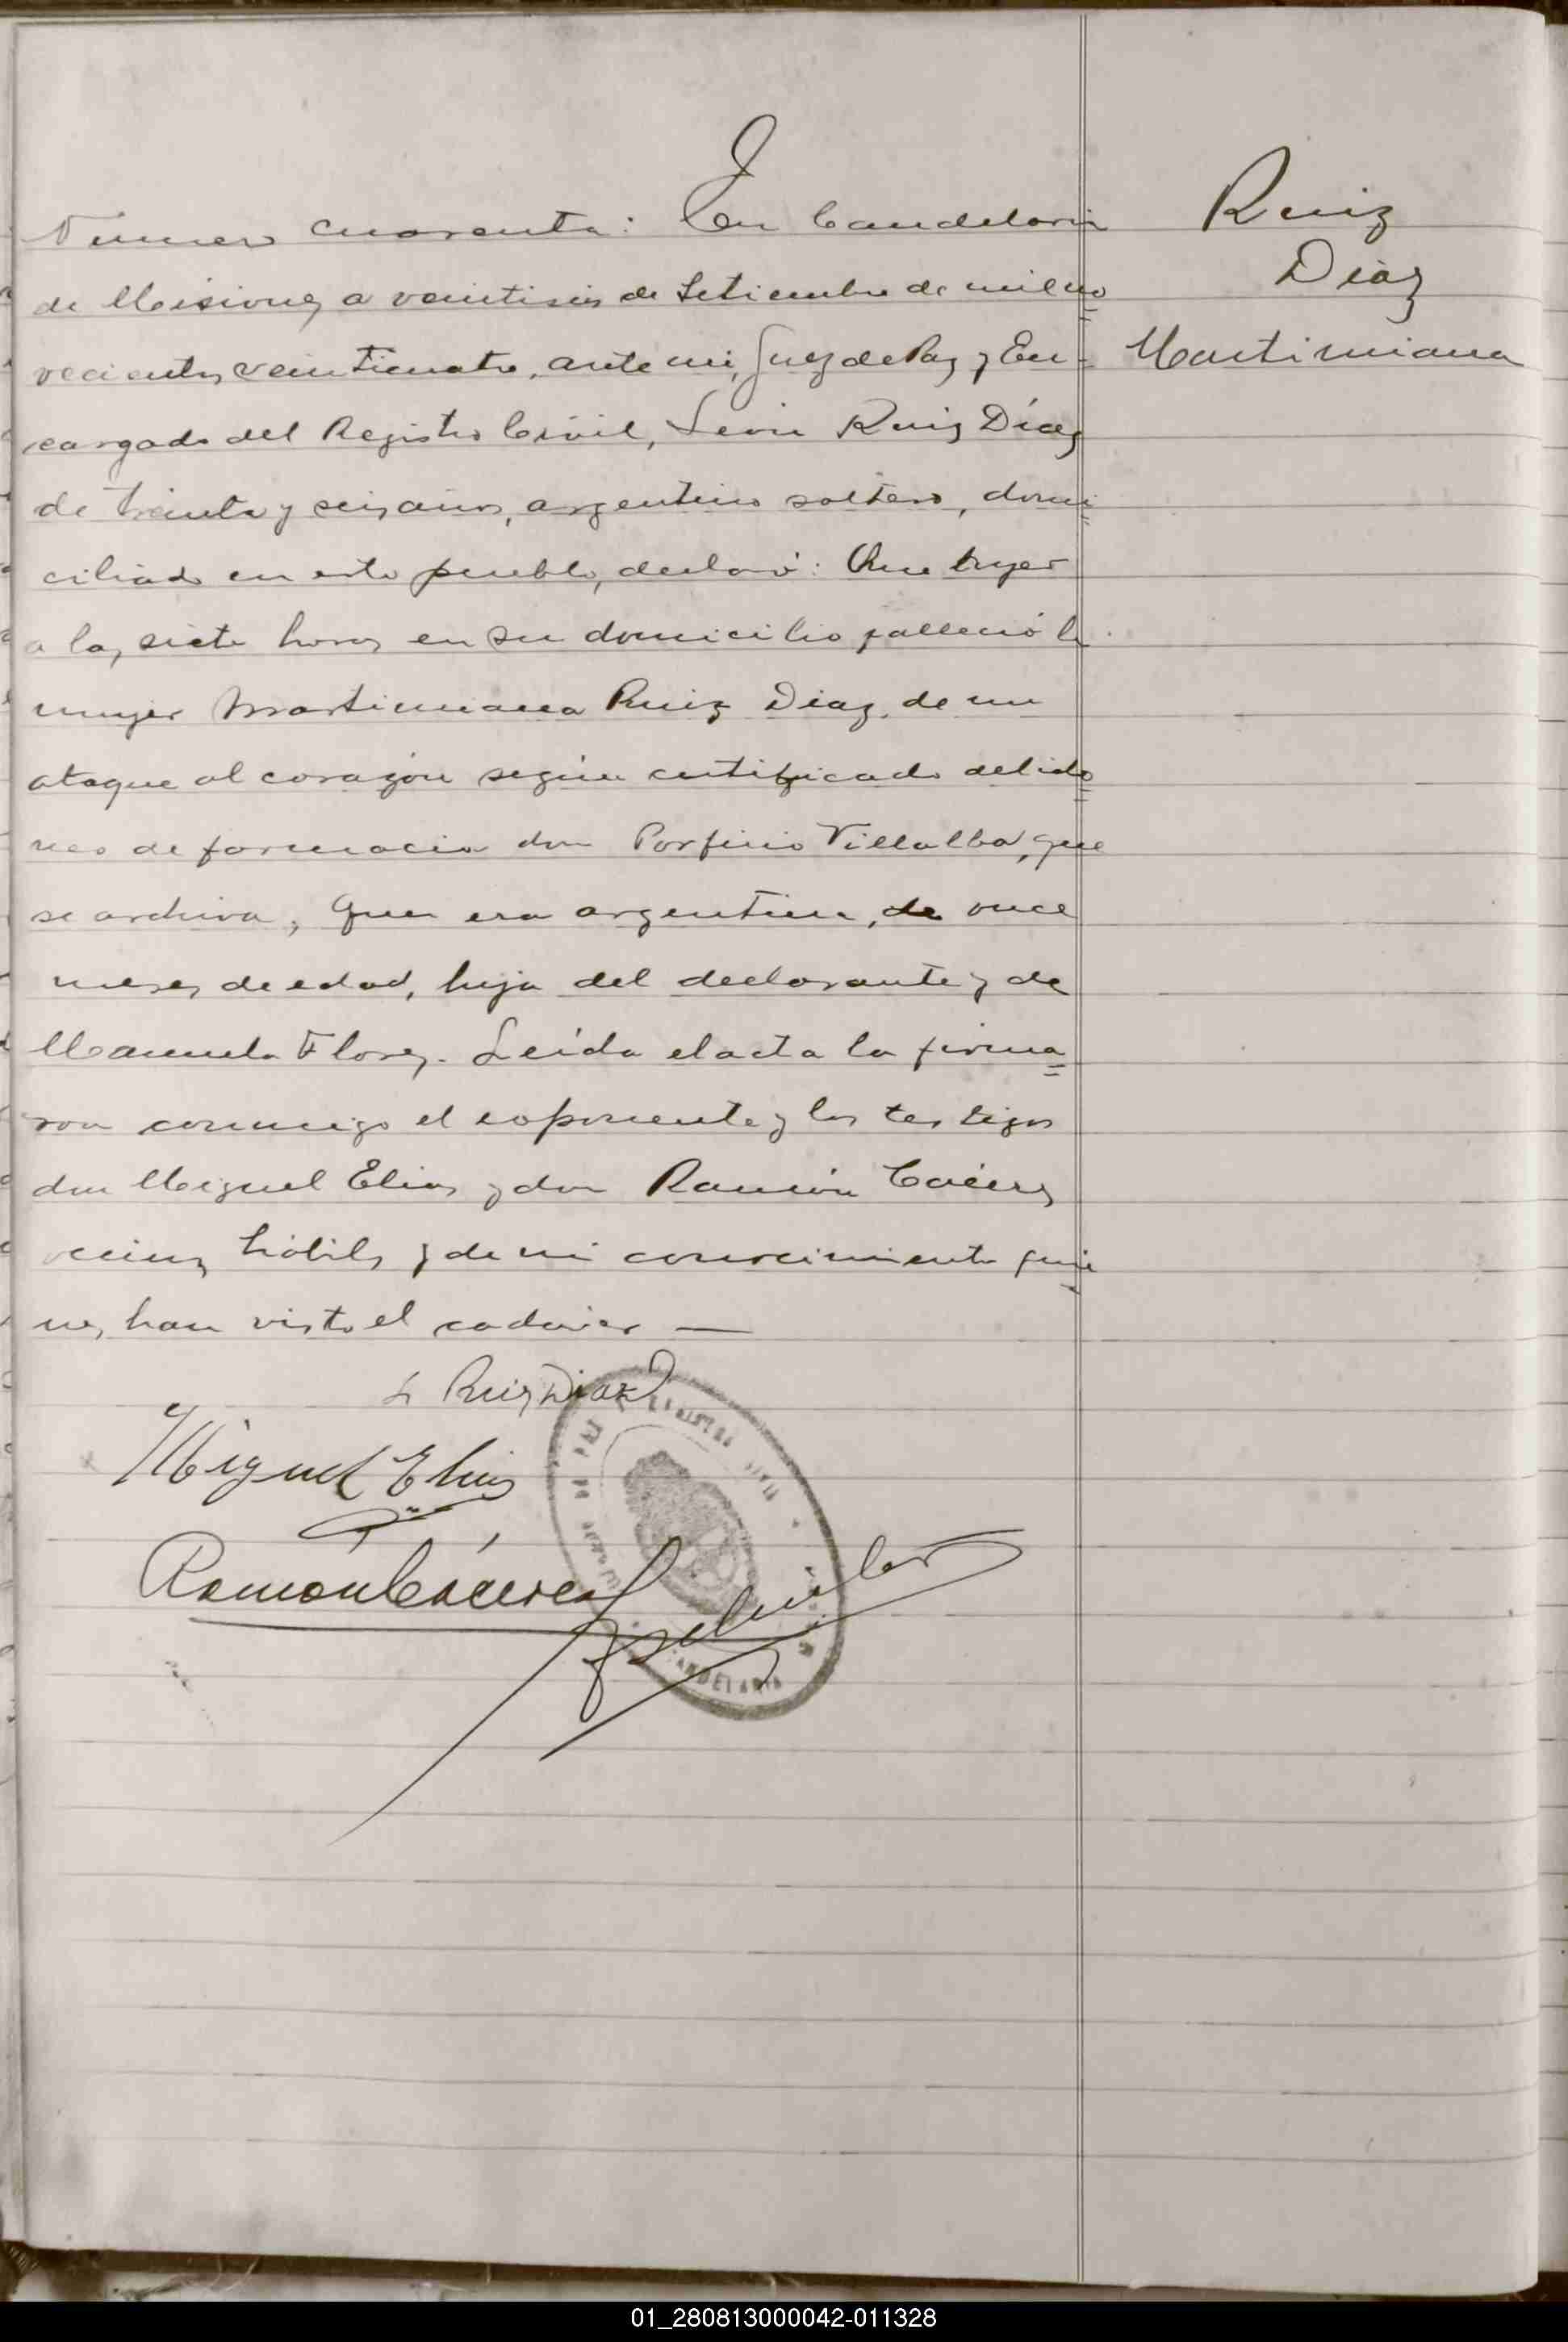 Número cuarenta: En Candelaria
de Misiones, a veintiseis de Setiembre de mil no=
vecientos veinticuatro, ante mi, Juez de Paz y En-
cargado del Registro Civil, León Ruiz Díaz
de treinta y seis años, argentino soltero, domi=
ciliado en este pueblo, declaró: Que ayer
a las siete horas en su domicilio falleció la
mujer Martimiana Ruiz Diaz, de un
ataque al corazón según certificado del idó=
neo de farmacia don Porfirio Villalba, que
se archiva; que era argentina, de once
meses de edad, hija del declarante y de
Manuela Flores. Leída el acta la firma=
ron conmigo el exponente y los testigos
don Miguel Elias y don Ramón Cáceres
vecinos hábiles y de mi conocimiento quie-
nes han visto el cadáver —
L Ruiz Diaz
Miguel Elias
Ramón Cáceres
REGISTRO CIVIL
DE PAZ
CANDELARIA
Ruiz
Diaz
Martimiana
01_280813000042-011328